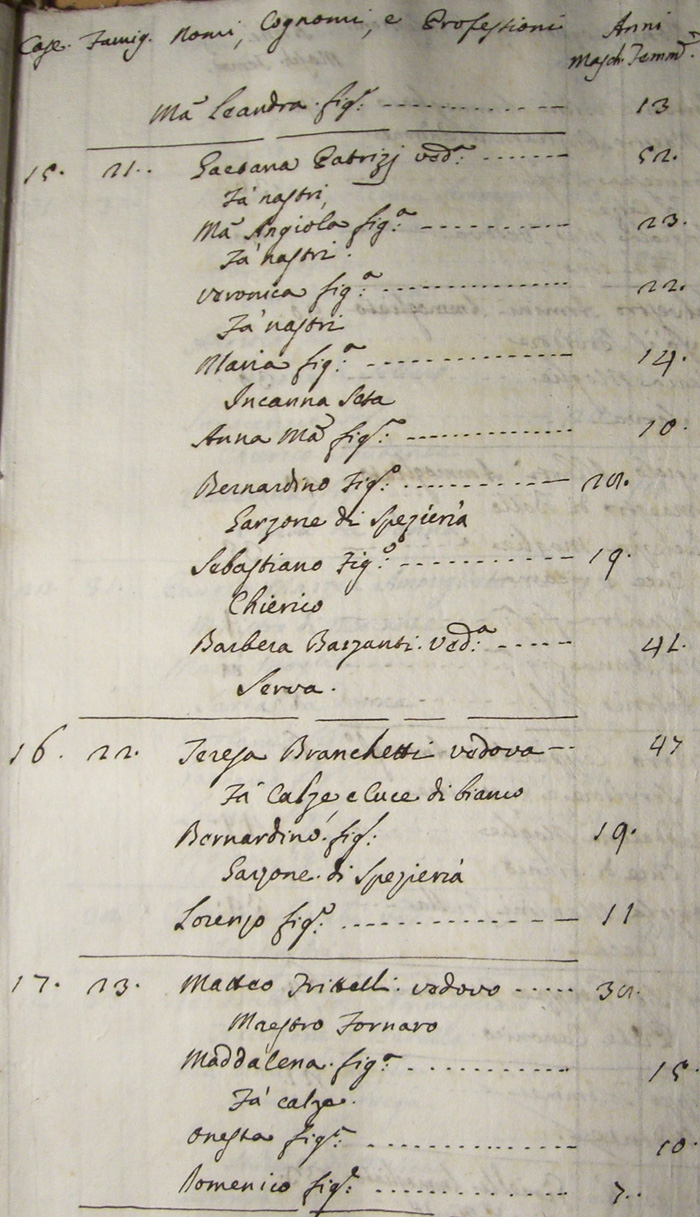 Case. Famig. Nomi, Cognomi, e Professioni Anni
Masch. Femm.
Ma Leandra figa 13
15. 21. Gaetana Patrizj veda 52.
Fà nastri,
Ma Angiola figa 23.
Fà nastri.
Veronica figa 22.
Fà nastri
Maria figa 14
Incanna Seta
Anna Ma figa 10.
Bernardino Figo
Garzone di Spezieria
Sebastiano Figo 19.
Chierico
Barbera Barzanti veda
Serva.
16. 22. Teresa Branchetti vedova 47
Fà Calze e Cuce di bianco
Bernardino. figo 19.
Garzone di Spezieria
Lorenzo figo 11
17. 23. Matteo Frittelli vedovo
Maestro Fornaro
Maddalena figa 15.
Fà calze.
Onesta figa 10.
Domenico figo 7.